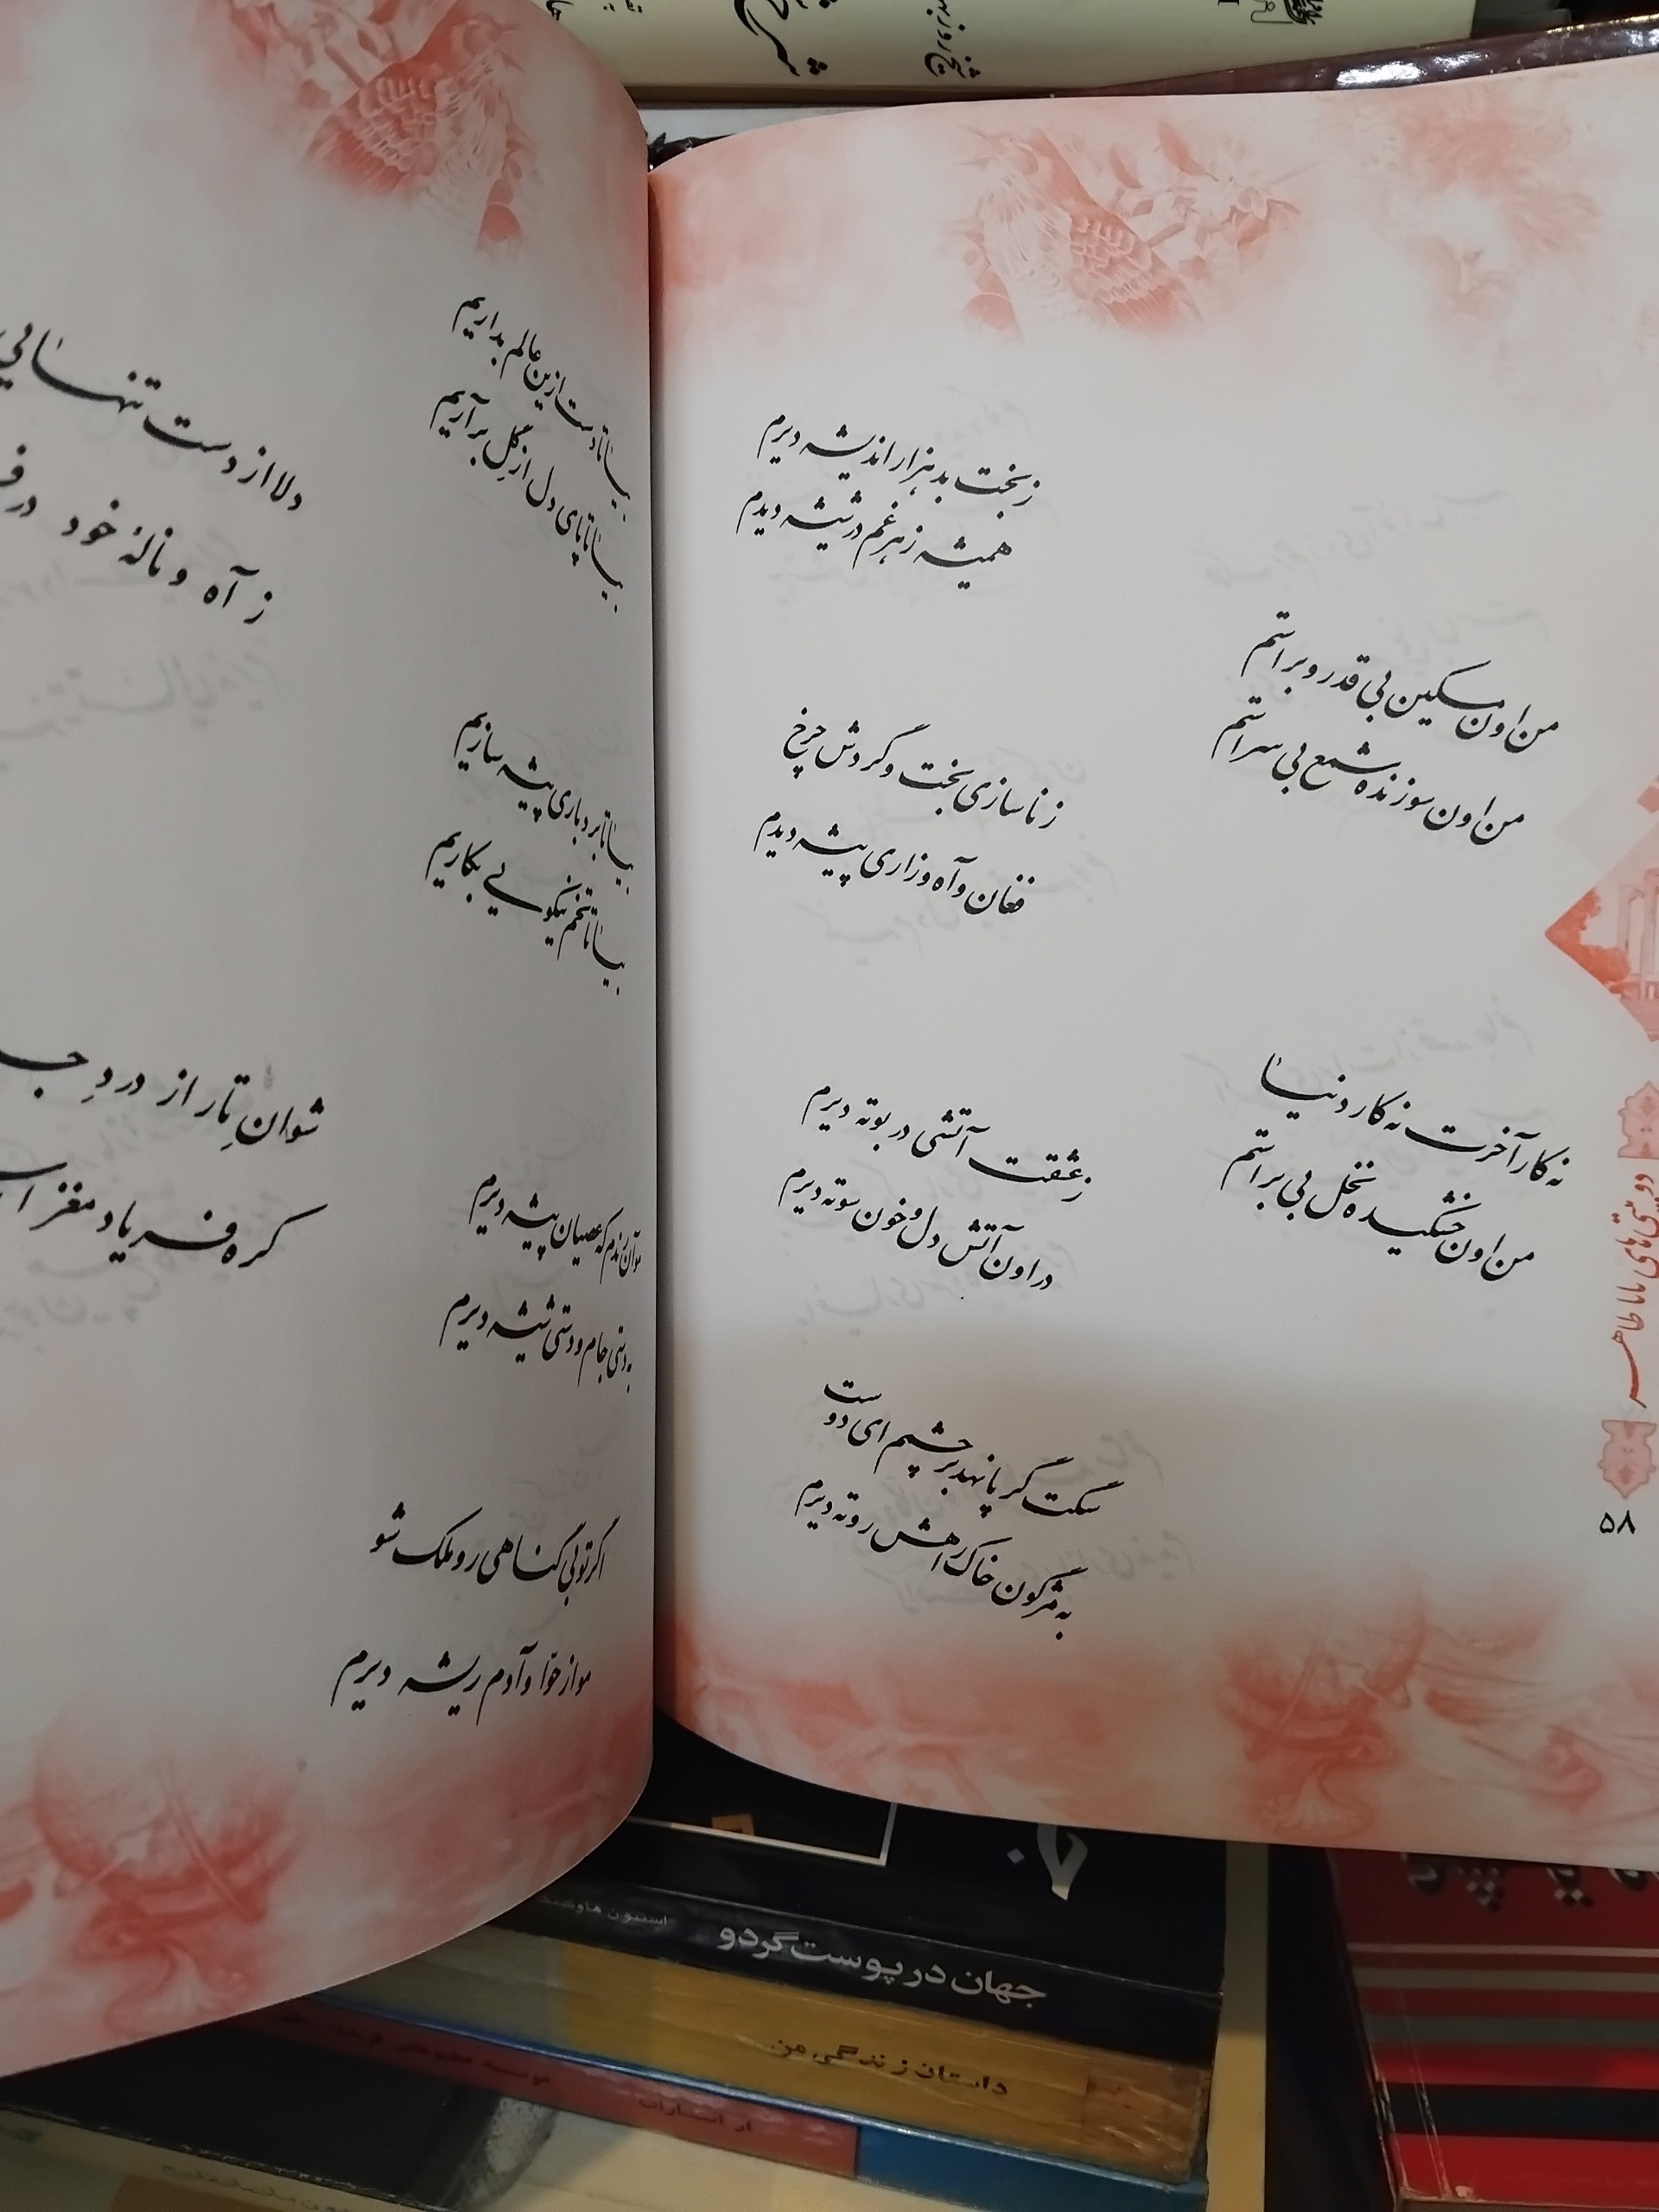 من اون مسکین بی قدر و براستم
من اون سوزنده شمع بی سراستم
نه کار آخرت نه کار دنیا
من اون خشکیده نخل بی براستم
ز بخت بد هزار اندیشه دیرم
همیشه زهر غم در شیشه دیدم
ز ناسازی بخت و گردش چرخ
فغان و آه و زاری پیشه دیدم
ز عشقت آتشی در بوته دیرم
در اون آتش دل و خون سوته دیرم
سگت گر پا نهد بر چشمم ای دوست
به مژگون خاک راهش روته دیرم
دوبیتی‌های بابا طاهر
۵۸
بیا تا دست ازین عالم بداریم
بیا تا پای دل از گل برآریم
بیا تا بردباری پیشه سازیم
بیا تا تخم نیکویی بکاریم
موآن رندم که عصیان پیشه دیرم
به دستی جام و دستی شیشه دیرم
اگر تو بی گناهی رو ملک شو
مو از حوا و آدم ریشه دیرم
دلا از دست تنهایی
ز آه و نالهٔ خود در
شوان تار از درد
کره فریاد مغز
جهان در پوست گردو
داستان زندگی من